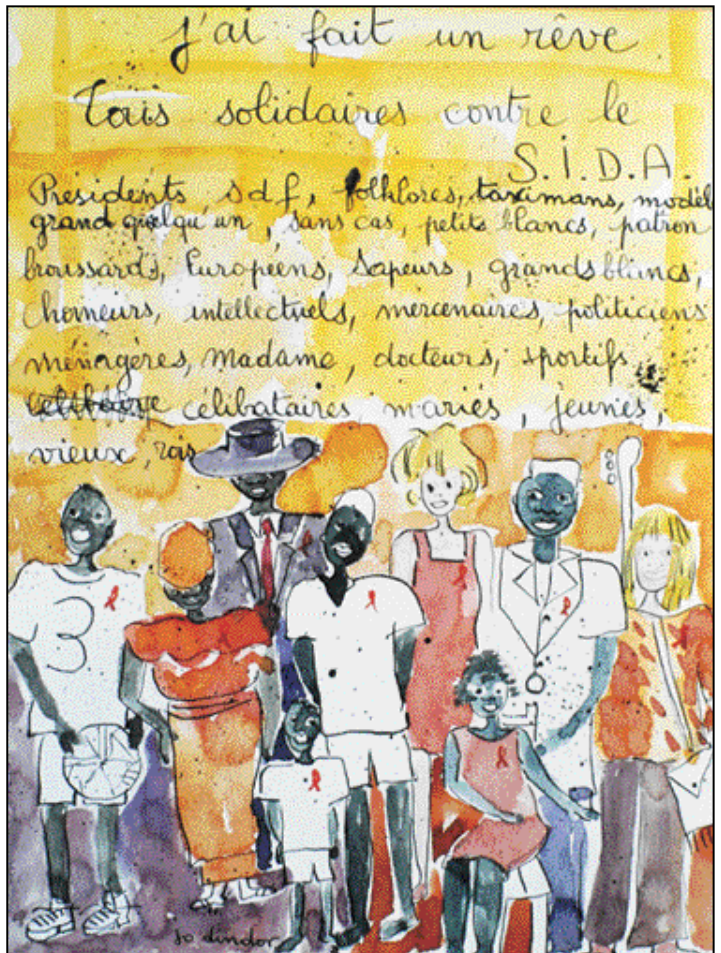 j'ai fait un rêve
Tous solidaires contre le
S.I.D.A.
Présidents, sdf, folklores, taximans, modèl
grand quelqu'un, sans cas, petits blancs, patron
broussards, Européens, Sapeurs, grands blancs,
chomeurs, intellectuels, mercenaires, politiciens
ménagères, madame, docteurs, sportifs
célibataires, mariés, jeunes,
vieux, rois
3
so dindor